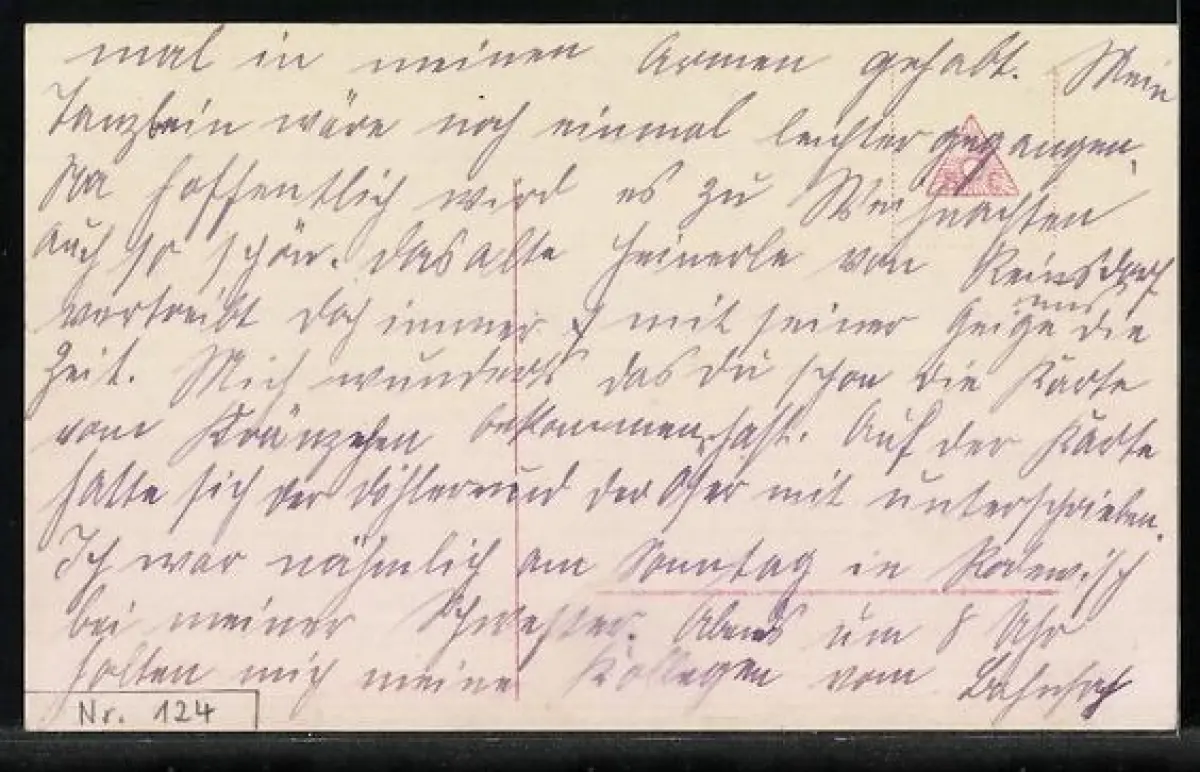 mal in meinen Armen gehabt. Mein
Tanzbein wäre noch einmal leichter gegangen.
Na hoffentlich wird es zu Weihnachten
auch so schön. Das alte Heinerle von Reinsdorf
vertreibt doch immer mit seiner Geige uns die
Zeit. Mich wunderts das Du schon die Karte
vom Kränzchen bekommen hast. Auf der Karte
hatte sich der und der mit unterschrieben.
Ich war nähmlich am Sonntag in Rodewisch
bei meiner Schwester. Abens um 8 Uhr
holten mich meine Kollegen vom Bahnhof
Nr. 124